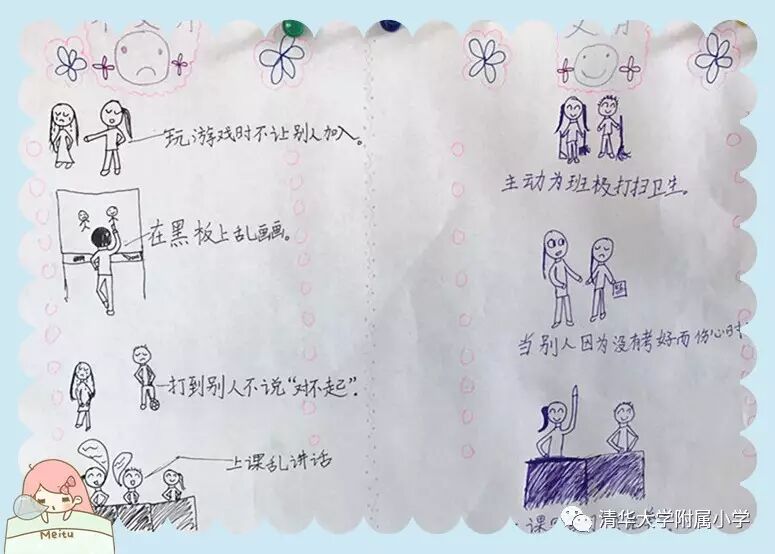 玩游戏时不让别人加入。
在黑板上乱画画。
打到别人不说“对不起”.
上课乱讲话
主动为班极打扫卫生。
当别人因为没有考好而伤心时
清华大学附属小学
Meitu